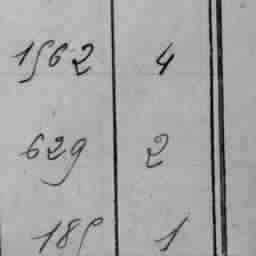 1562 4
629 2
185 1